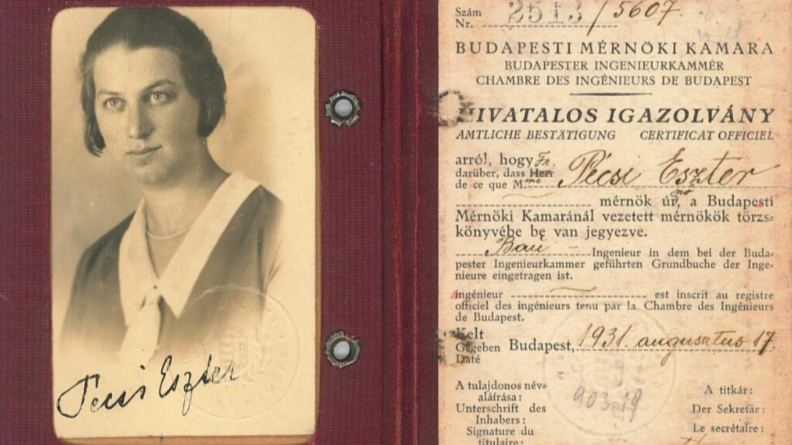 Pécsi Eszter
Szám
Nr. 2513 / 5607.
BUDAPESTI MÉRNÖKI KAMARA
BUDAPESTER INGENIEURKAMMER
CHAMBRE DES INGÉNIEURS DE BUDAPEST
HIVATALOS IGAZOLVÁNY
AMTLICHE BESTÄTIGUNG CERTIFICAT OFFICIEL
arról, hogy Fr.
darüber, dass Herr Pécsi Eszter
de ce que M. me
mérnök úr, nő a Budapesti
Mérnöki Kamaránál vezetett mérnökök törzs-
könyvébe be van jegyezve.
Bau Ingenieur in dem bei der Buda-
pester Ingenieurkammer geführten Grundbuche der Inge-
nieure eingetragen ist.
ingénieur est inscrit au registre
officiel des ingénieurs tenu par la Chambre des Ingénieurs
de Budapest.
Kelt
Gegeben Budapest, 1931. augusztus 17.
Daté
903.19
A tulajdonos név-
aláírása:
Unterschrift des
Inhabers:
Signature du
titulaire:
A titkár:
Der Sekretär:
Le secrétaire: